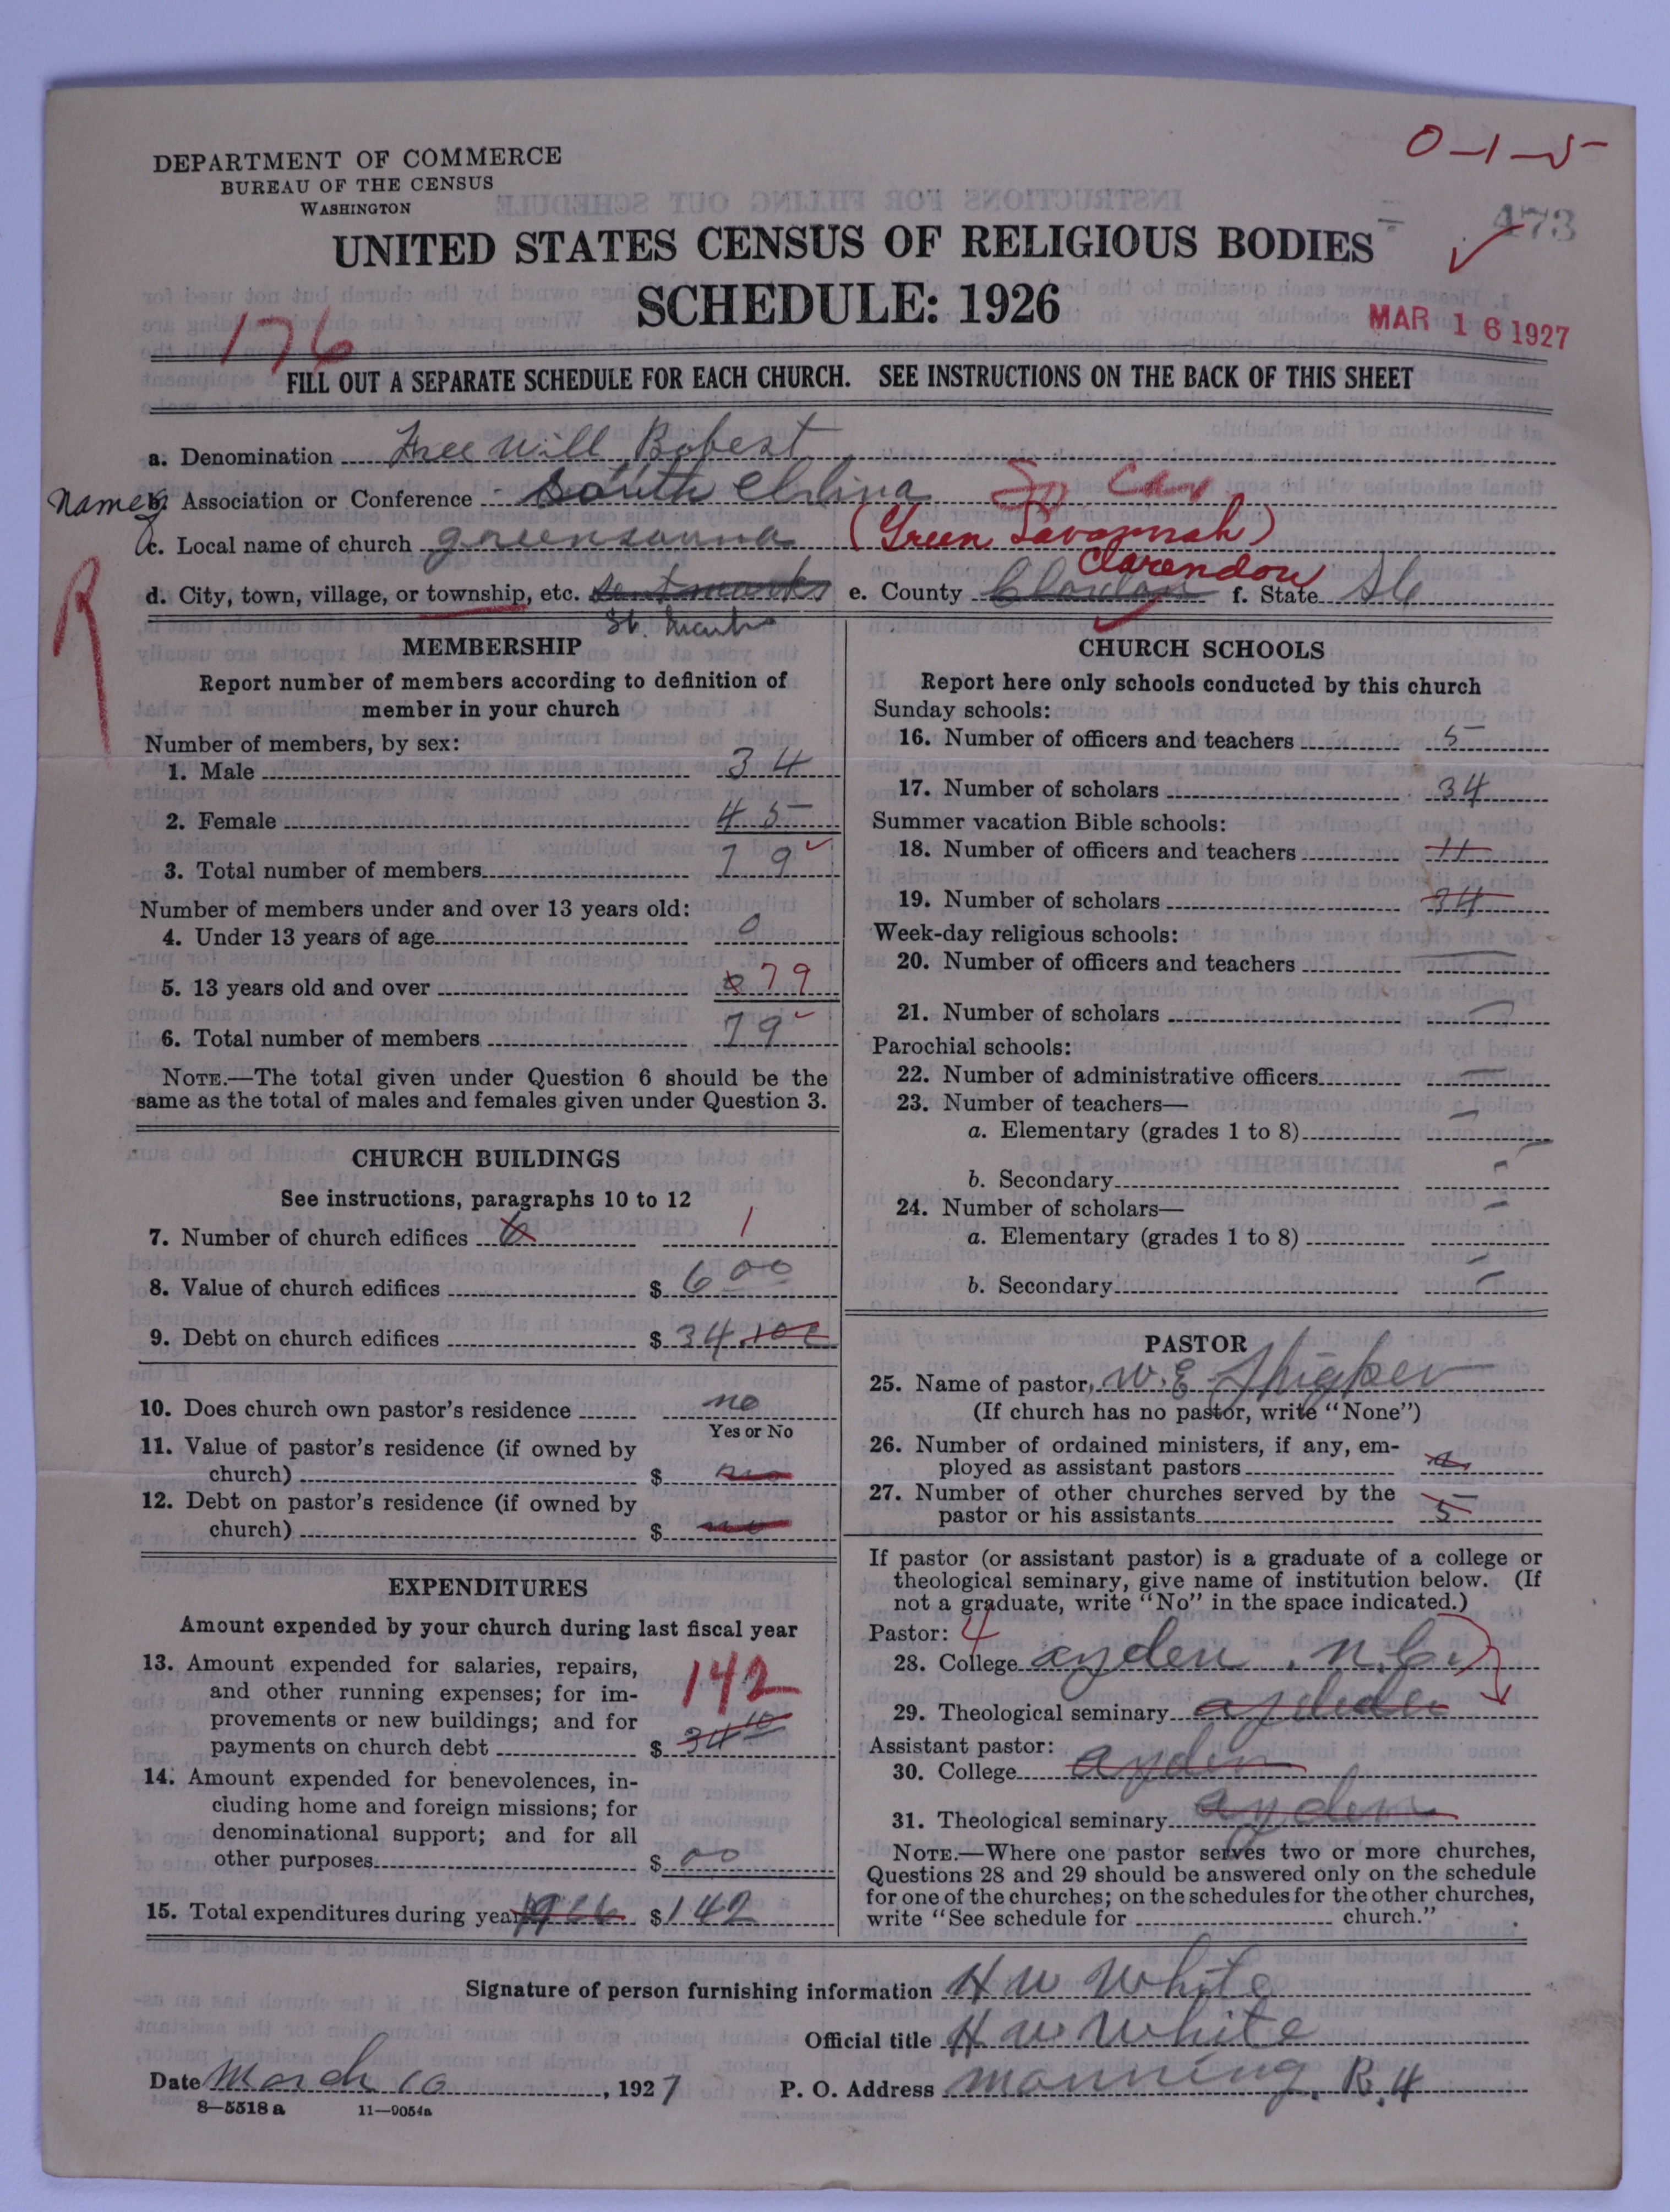 0-1-5
DEPARTMENT OF COMMERCE
BUREAU OF THE CENSUS
WASHINGTON
473
UNITED STATES CENSUS OF RELIGIOUS BODIES
SCHEDULE: 1926
MAR 16 1927
176
FILL OUT A SEPARATE SCHEDULE FOR EACH CHURCH. SEE INSTRUCTIONS ON THE BACK OF THIS SHEET
a. Denomination Free Will Babest
Name b. Association or Conference South Clilina So Car
c. Local name of church greensanna (Green Savannah)
R
d. City, town, village, or township, etc. Sentmarks St. Marks e. County Clarendon f. State SC
MEMBERSHIP
Report number of members according to definition of
member in your church
Number of members, by sex:
1. Male 34
2. Female 45
3. Total number of members 79
Number of members under and over 13 years old:
4. Under 13 years of age 0
5. 13 years old and over 79
6. Total number of members 79
NOTE.—The total given under Question 6 should be the
same as the total of males and females given under Question 3.
CHURCH BUILDINGS
See instructions, paragraphs 10 to 12
7. Number of church edifices 1
8. Value of church edifices $ 600
9. Debt on church edifices $ 34
10. Does church own pastor's residence no
Yes or No
11. Value of pastor's residence (if owned by
church) $ no
12. Debt on pastor's residence (if owned by
church) $ no
EXPENDITURES
Amount expended by your church during last fiscal year
13. Amount expended for salaries, repairs,
and other running expenses; for im-
provements or new buildings; and for
payments on church debt $ 34 10 142
14. Amount expended for benevolences, in-
cluding home and foreign missions; for
denominational support; and for all
other purposes $ 00
15. Total expenditures during year $ 142
CHURCH SCHOOLS
Report here only schools conducted by this church
Sunday schools:
16. Number of officers and teachers 5
17. Number of scholars 34
Summer vacation Bible schools:
18. Number of officers and teachers 11
19. Number of scholars 34
Week-day religious schools:
20. Number of officers and teachers —
21. Number of scholars —
Parochial schools:
22. Number of administrative officers —
23. Number of teachers—
a. Elementary (grades 1 to 8) —
b. Secondary —
24. Number of scholars—
a. Elementary (grades 1 to 8) —
b. Secondary —
PASTOR
25. Name of pastor, W. E.
(If church has no pastor, write "None")
26. Number of ordained ministers, if any, em-
ployed as assistant pastors
27. Number of other churches served by the
pastor or his assistants 5
If pastor (or assistant pastor) is a graduate of a college or
theological seminary, give name of institution below. (If
not a graduate, write "No" in the space indicated.)
Pastor: 4
28. College ayden, N.C.
29. Theological seminary
Assistant pastor:
30. College ayden
31. Theological seminary ayden
NOTE.—Where one pastor serves two or more churches,
Questions 28 and 29 should be answered only on the schedule
for one of the churches; on the schedules for the other churches,
write "See schedule for church."
Signature of person furnishing information H W White
Official title H W White
Date March 10, 1927 P. O. Address Manning, R. 4
8—5518a 11—9054a